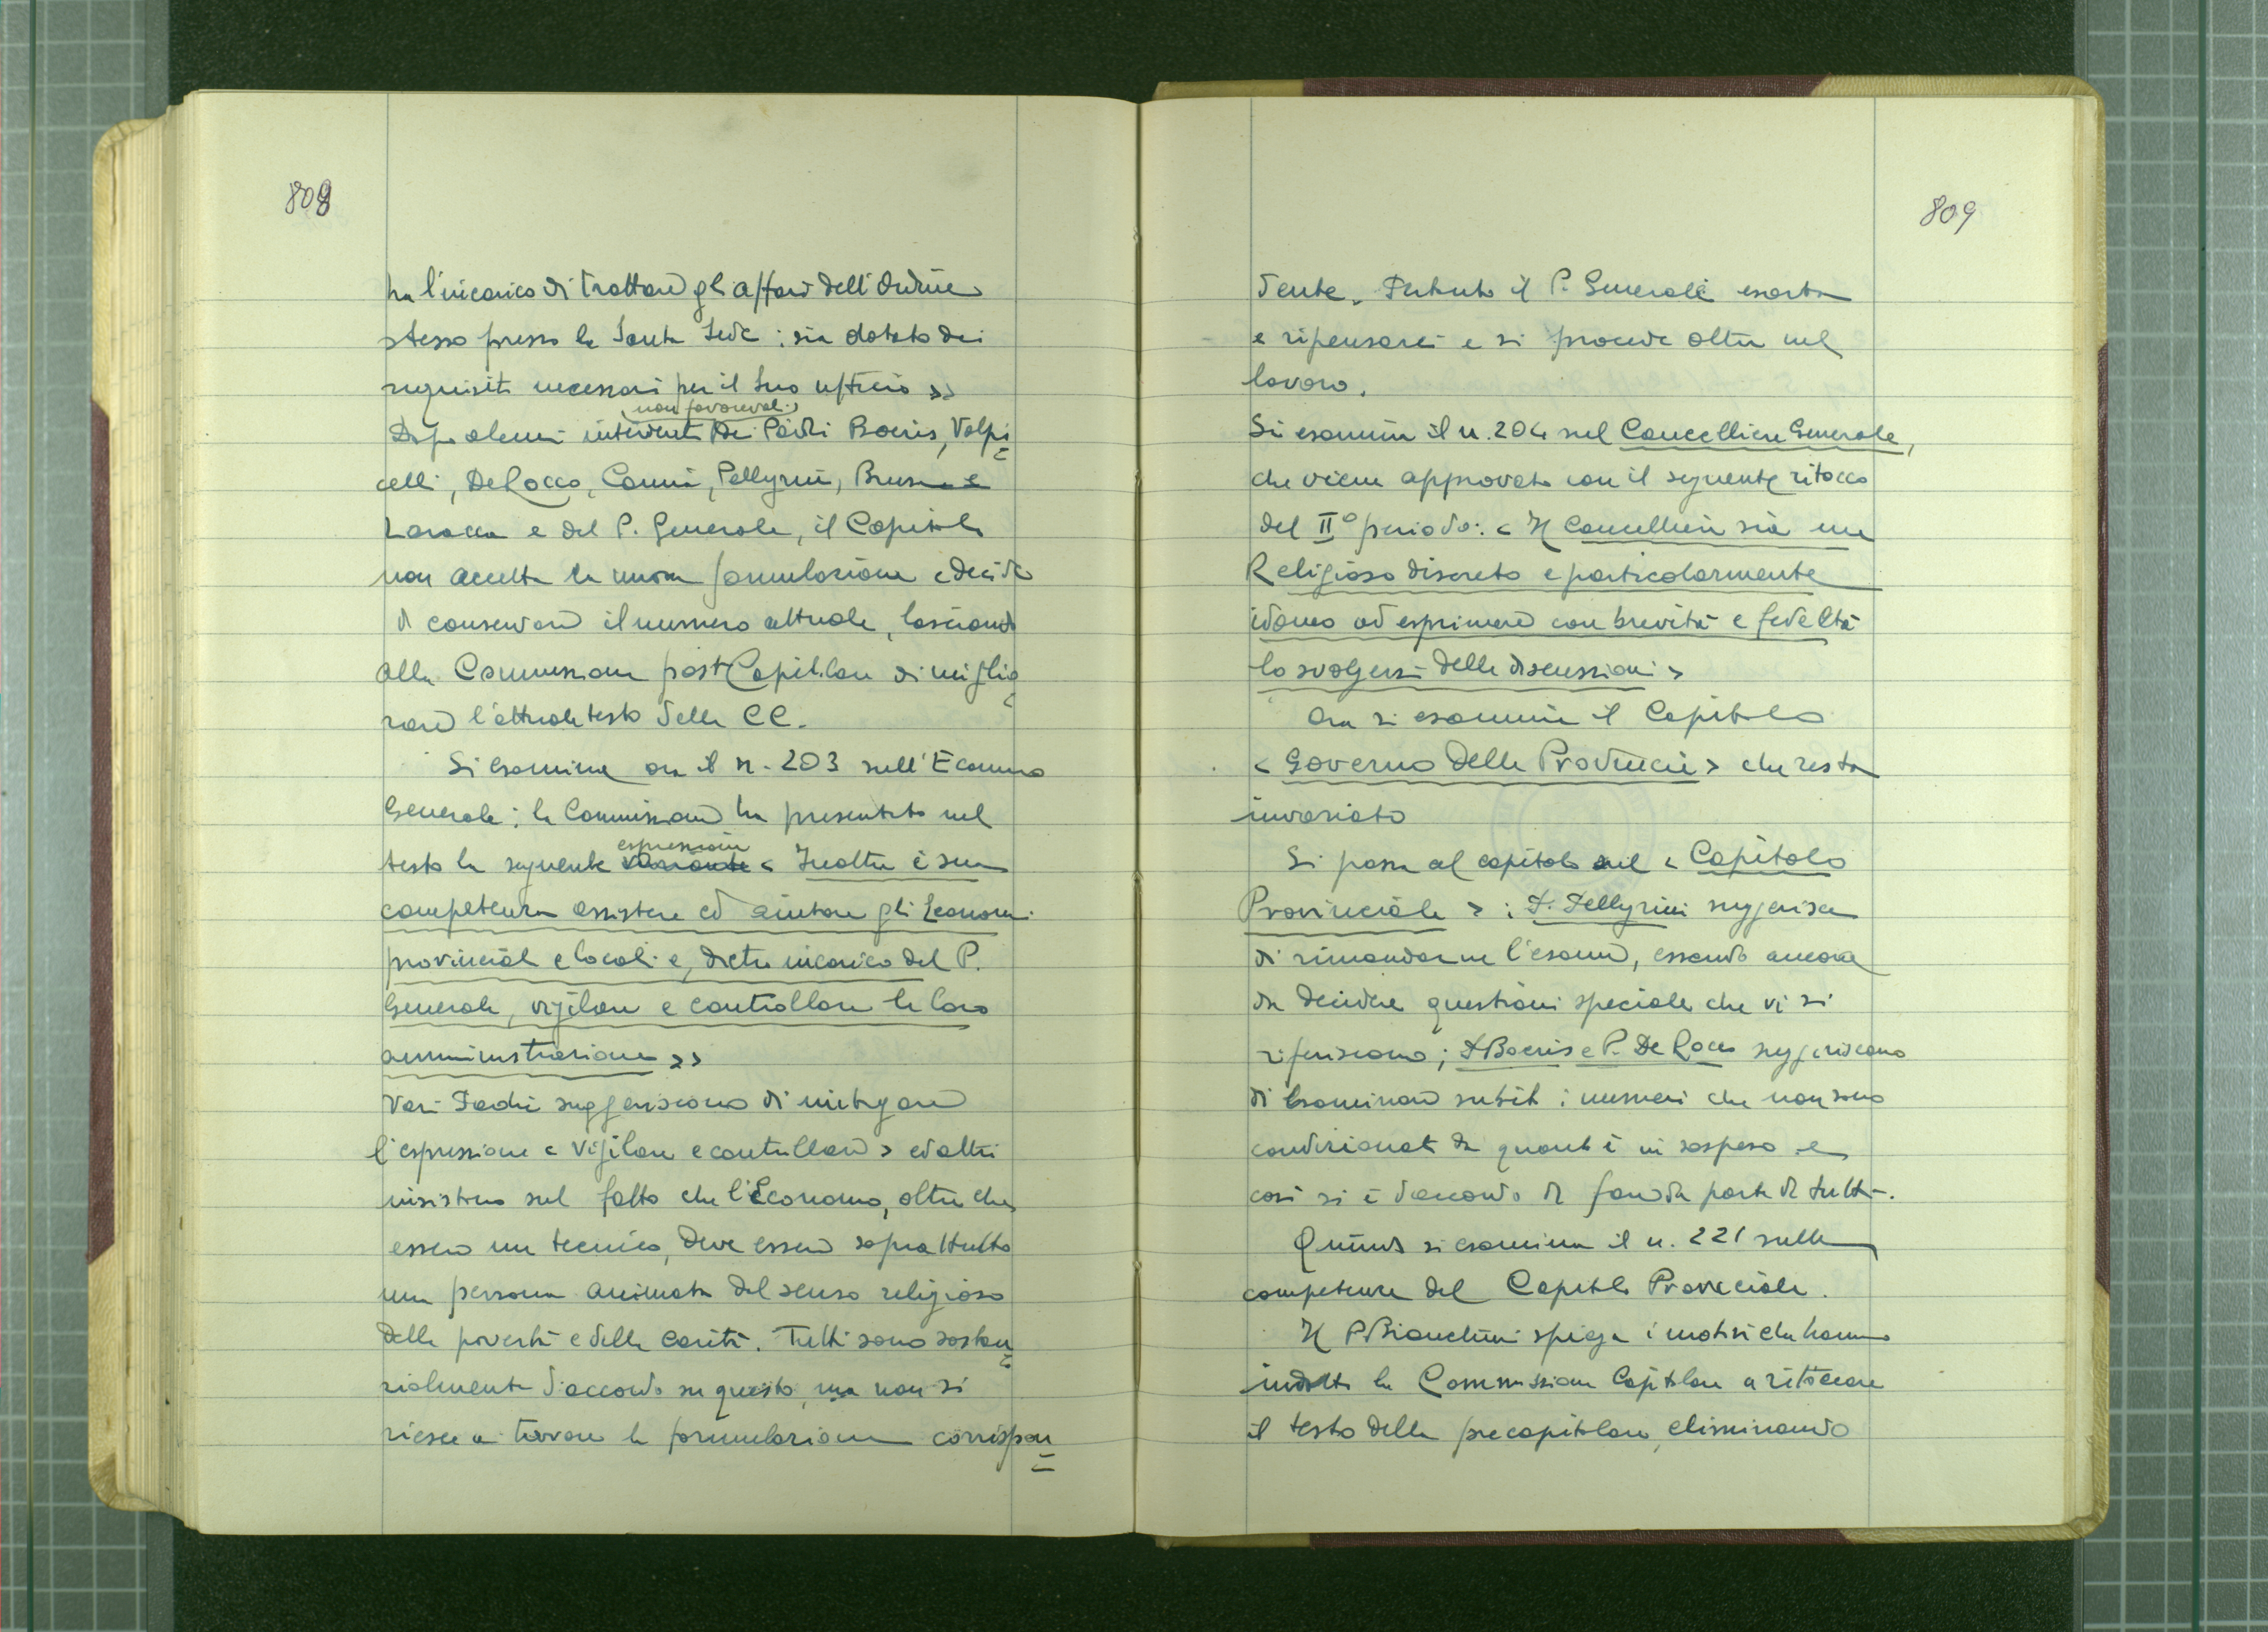 808
ha l'incarico di trattare gli affari dell'Ordine
stesso presso la Santa Sede; sia dotato dei
requisiti necessari per il suo ufficio >>
(non favorevoli)
Dopo alcuni interventi dei Padri Boeris, Volpi
celli, De Rocco, Canni, Pellegrini, Brusa e
Laracca e del P. Generale, il Capitolo
non accetta la nuova formulazione e decide
di conservare il numero attuale, lasciando
alla Commissione postCapitolare di miglio
rare l'attuale testo delle CC.
Si esamina ora il n. 203 sull'Economo
Generale: la Commissione ha presentato nel
espressione
testo la seguente variante < Inoltre è sua
competenza assistere ed aiutare gli Economi
provinciali e locali e, dietro incarico del P.
Generale, vigilare e controllare la loro
amministrazione >>
Vari Padri suggeriscono di mitigare
l'espressione < vigilare e controllare > ed altri
insistono sul fatto che l'Economo, oltre che
essere un tecnico, deve essere soprattutto
una persona animata dal senso religioso
della povertà e della carità. Tutti sono sostan
zialmente d'accordo su questo, ma non si
riesce a trovare la formulazione corrispon
809
dente. Pertanto il P. Generale esorta
a ripensarci e si procede oltre nel
lavoro.
Si esamina il n. 204 sul Cancelliere Generale,
che viene approvato con il seguente ritocco
del II° periodo: < Il Cancelliere sia un
Religioso discreto e particolarmente
idoneo ad esprimere con brevità e fedeltà
lo svolgersi delle discussioni >
Ora si esamina il Capitolo
< Governo delle Provincie > che resta
invariato
Si passa al capitolo sul < Capitolo
Provinciale > : P. Pellegrini suggerisce
di rimandarne l'esame, essendo ancora
da decidere questioni speciali che vi si
riferiscono; P Boeris e P. De Rocco suggeriscono
di esaminare subito i numeri che non sono
condizionati da quanto è in sospeso e
così si è d'accordo di fare da parte di tutti.
Quindi si esamina il n. 221 sulle
competenze del Capitolo Provinciale.
Il P Bianchini spiega i motivi che hanno
indotto la Commissione Capitolare a ritoccare
il testo della precapitolare, eliminando